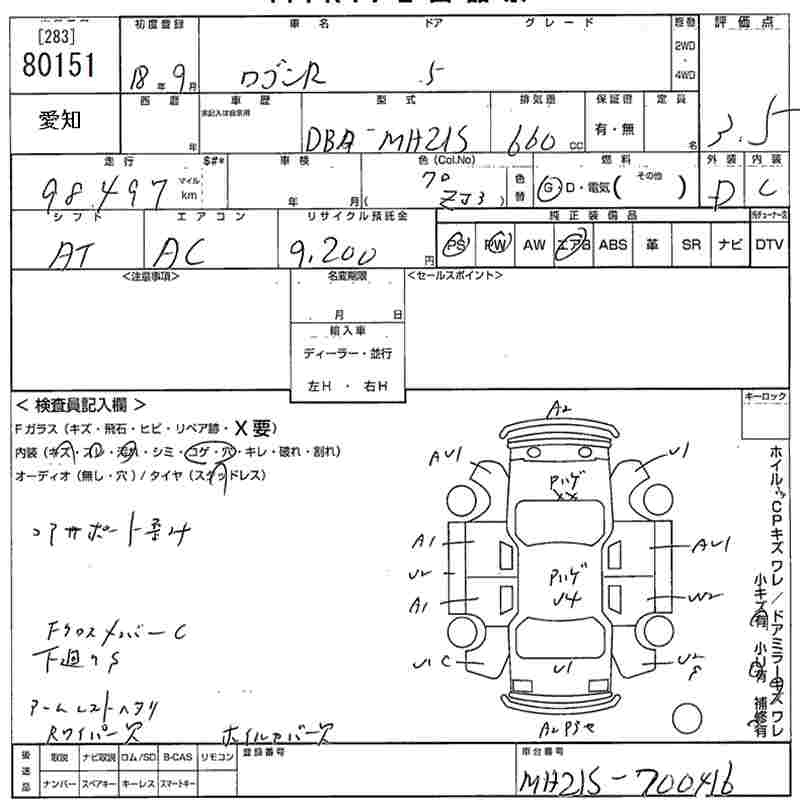 [283]
80151
愛知
初度登録
18年 9月
車名 ドア グレード
ワゴンR 5
駆動
2WD
・
4WD
評価点
3.5
西暦
年
車歴
未記入は自家用
型式
DBA-MH21S
排気量
660 cc
保証書
有・無
定員
名
走行
98,497
マイル
km
$#*
車検
年 月
色 (Col.No)
( ZJ3 )
色替
燃料
G・D・電気( その他 )
外装
D
内装
C
シフト
AT
エアコン
AC
リサイクル預託金
9,200 円
純正装備品
PS PW AW エアB ABS 革 SR ナビ DTV
<注意事項>
名変期限
月 日
輸入車
ディーラー・並行
左H ・ 右H
<セールスポイント>
キーロック
< 検査員記入欄 >
Fガラス (キズ・飛石・ヒビ・リペア跡・X要)
内装 (キズ・スレ・汚れ・シミ・コゲ・穴・キレ・破れ・割れ)
オーディオ (無し・穴) / タイヤ (スタッドレス)
コアサポート歪み
FクロスメンバーC
下廻りS
アームレストヘタリ
Rワイパー欠
ホイルカバー欠
A2
AU1
U1
Pハゲ
XX
A1
U2
A1
Pハゲ
U4
AU1
U1C
U1
U2
S
ホイル、CPキズワレ/ドアミラーキズワレ
小キズ有 小U有 補修有
後送品
取説 ナビ取説 ロム/SD B-CAS リモコン
ナンバー スペアキー キーレス スマートキー
登録番号
車台番号
MH21S-700416